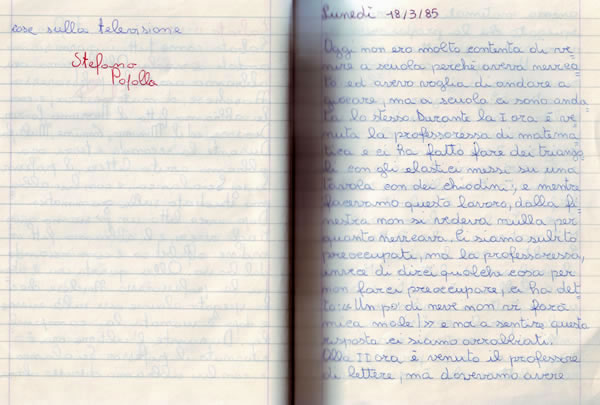 cose sulla televisione
Stefano
Pofolla
Lunedì 18/3/85
Oggi non ero molto contenta di ve-
nire a scuola perché aveva nevica-
to ed avevo voglia di andare a
giocare, ma a scuola ci sono anda-
ta lo stesso. Durante la I ora è ve-
nuta la professoressa di matema-
tica e ci ha fatto fare dei triango-
li con gli elastici messi su una
tavola con dei chiodini, e mentre
facevamo questo lavoro, dalla fi-
nestra non si vedeva nulla per
quanto nevicava. Ci siamo subito
preoccupati, ma la professoressa,
invece di dirci qualche cosa per
non farci preoccupare, ci ha det-
to: «Un po' di neve non vi farà
mica male!» e noi a sentire questa
risposta ci siamo arrabbiati.
Alla II ora è venuto il professore
di lettere, ma dovevamo avere